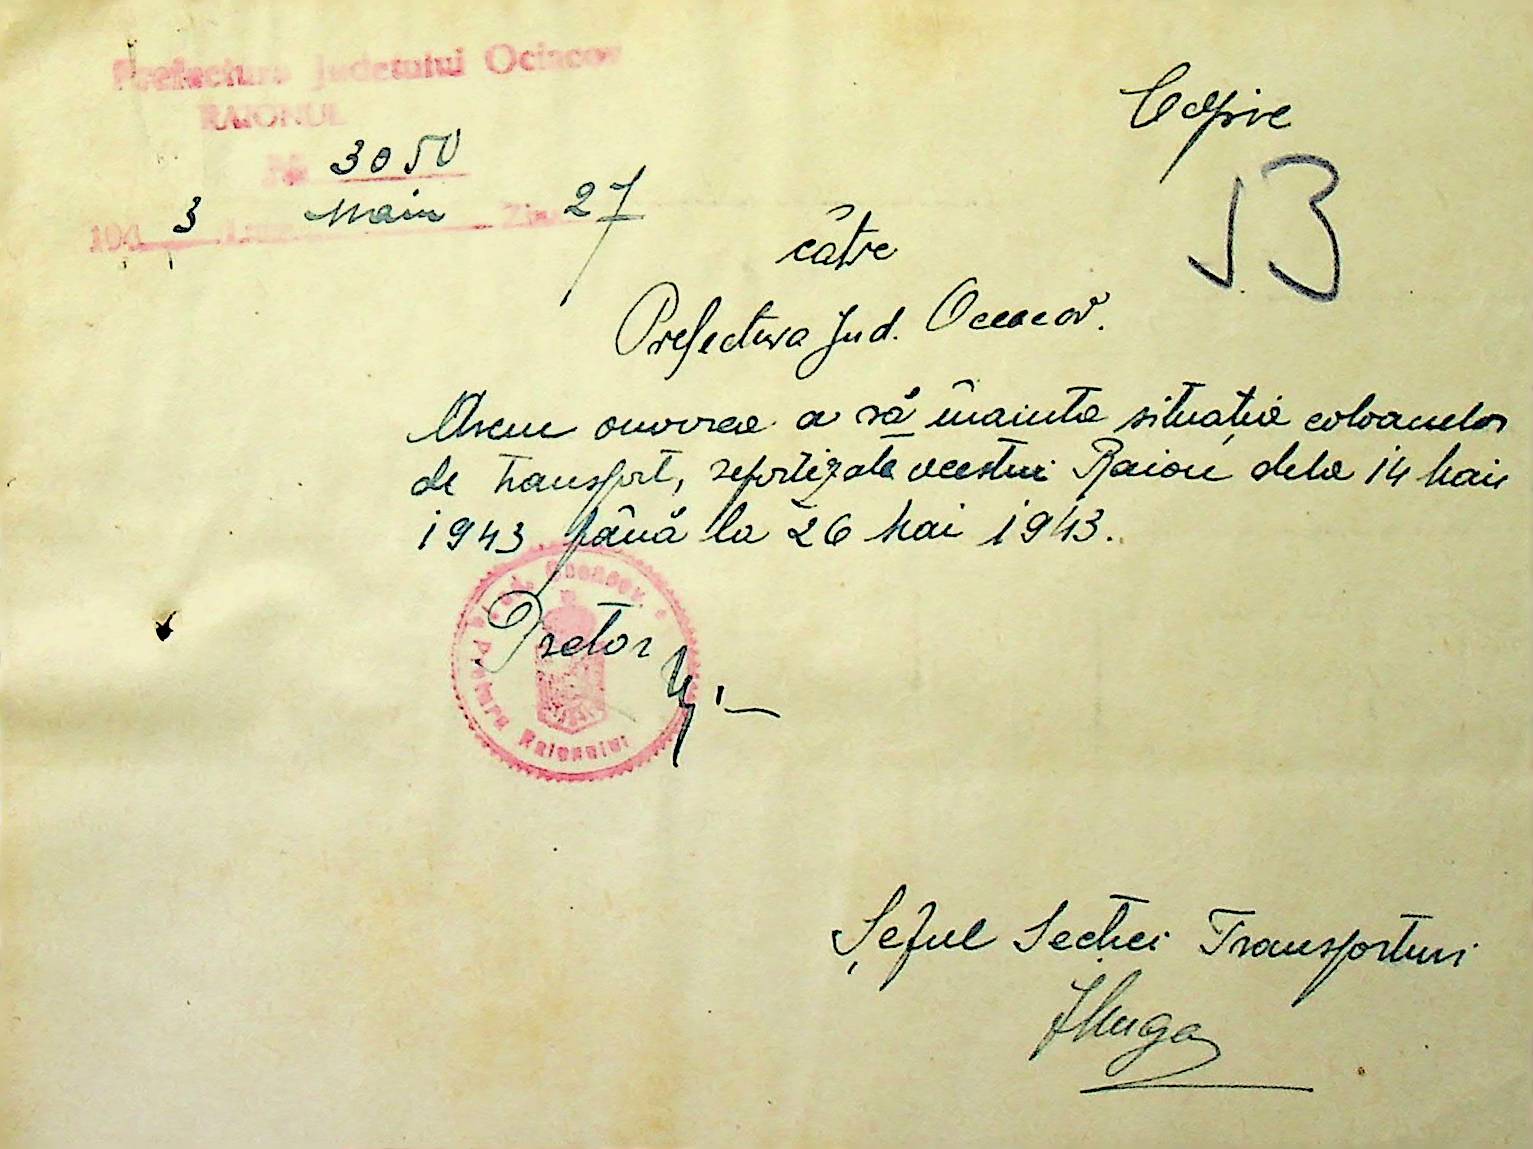 Prefectura Judetului Ociacov
RAIONUL
№ 3050
194 3 Luna Main Ziua 27
Copie
53
către
Prefectura Jud. Oceacov.
Avem onoarea a vă înainta situația coloanelor
de transport, repartizate acestui Raion dela 14 Mai
1943 până la 26 Mai 1943.
Pretor
Jud. Oceacov
Pretura Raionului
Șeful Secției Transporturi